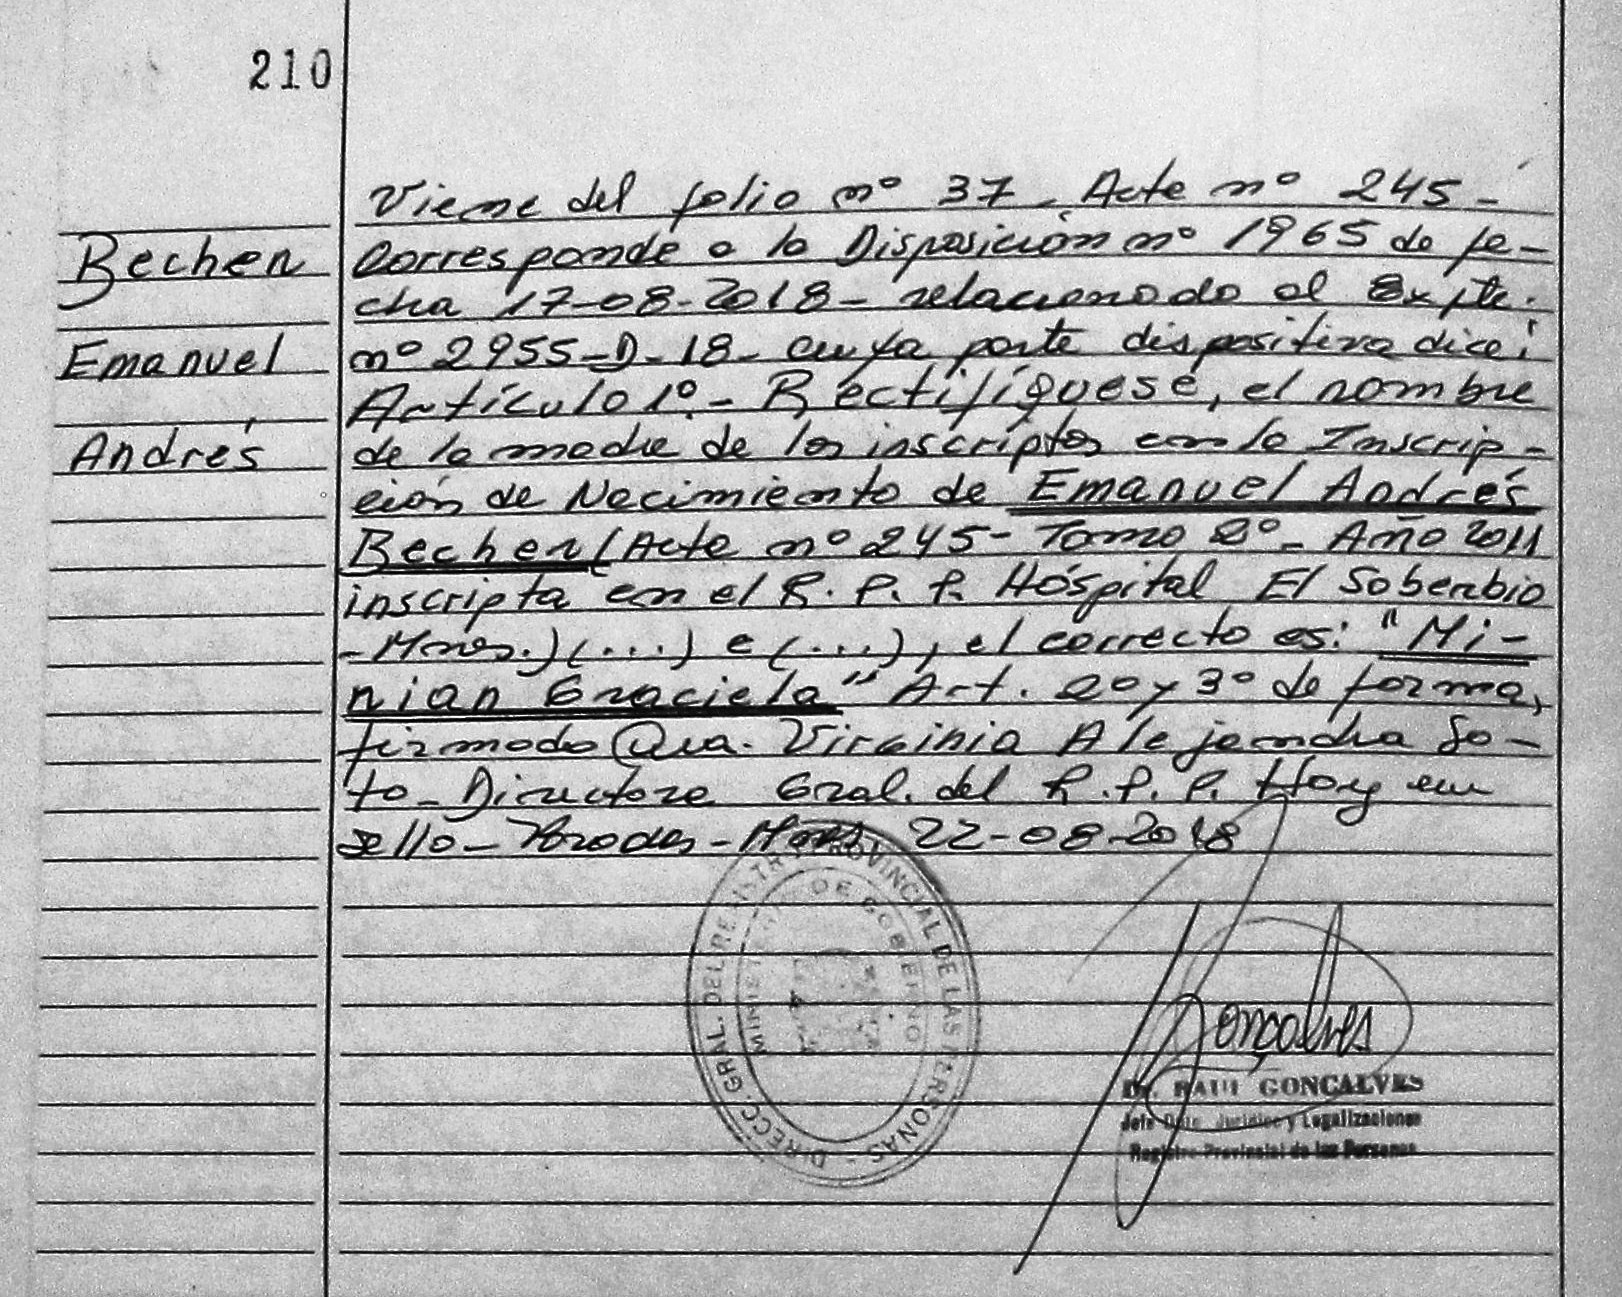 210
Viene del folio nº 37. Acta nº 245-
Becher
Emanuel
Andrés
Corresponde a la Disposición nº 1965 de fe-
cha 17-08-2018- relacionado al Expte.
nº 2955-D-18- cuya parte dispositiva dice:
Artículo 1º.- Rectifíquese, el nombre
de la madre de los inscriptos con la Inscrip-
ción de Nacimiento de Emanuel Andrés
Becher (Acta nº 245- Tomo 2º- Año 2011
inscripta en el R.P.P. Hospital El Soberbio
-Mnes.) (...) e (...), el correcto es: "Mi-
rian Graciela" Art. 2º y 3º de forma,
firmado Dra. Virginia Alejandra So-
to- Directora Gral. del R.P.P. Hay un
sello- Posadas- Mnes 22-08-2018
DIRECC. GRAL. DEL REGISTRO PROVINCIAL DE LAS PERSONAS -
MINISTERIO DE GOBIERNO
Gonçalves
Dr. RAUL GONÇALVES
Jefe Dpto. Jurídico y Legalizaciones
Registro Provincial de las Personas